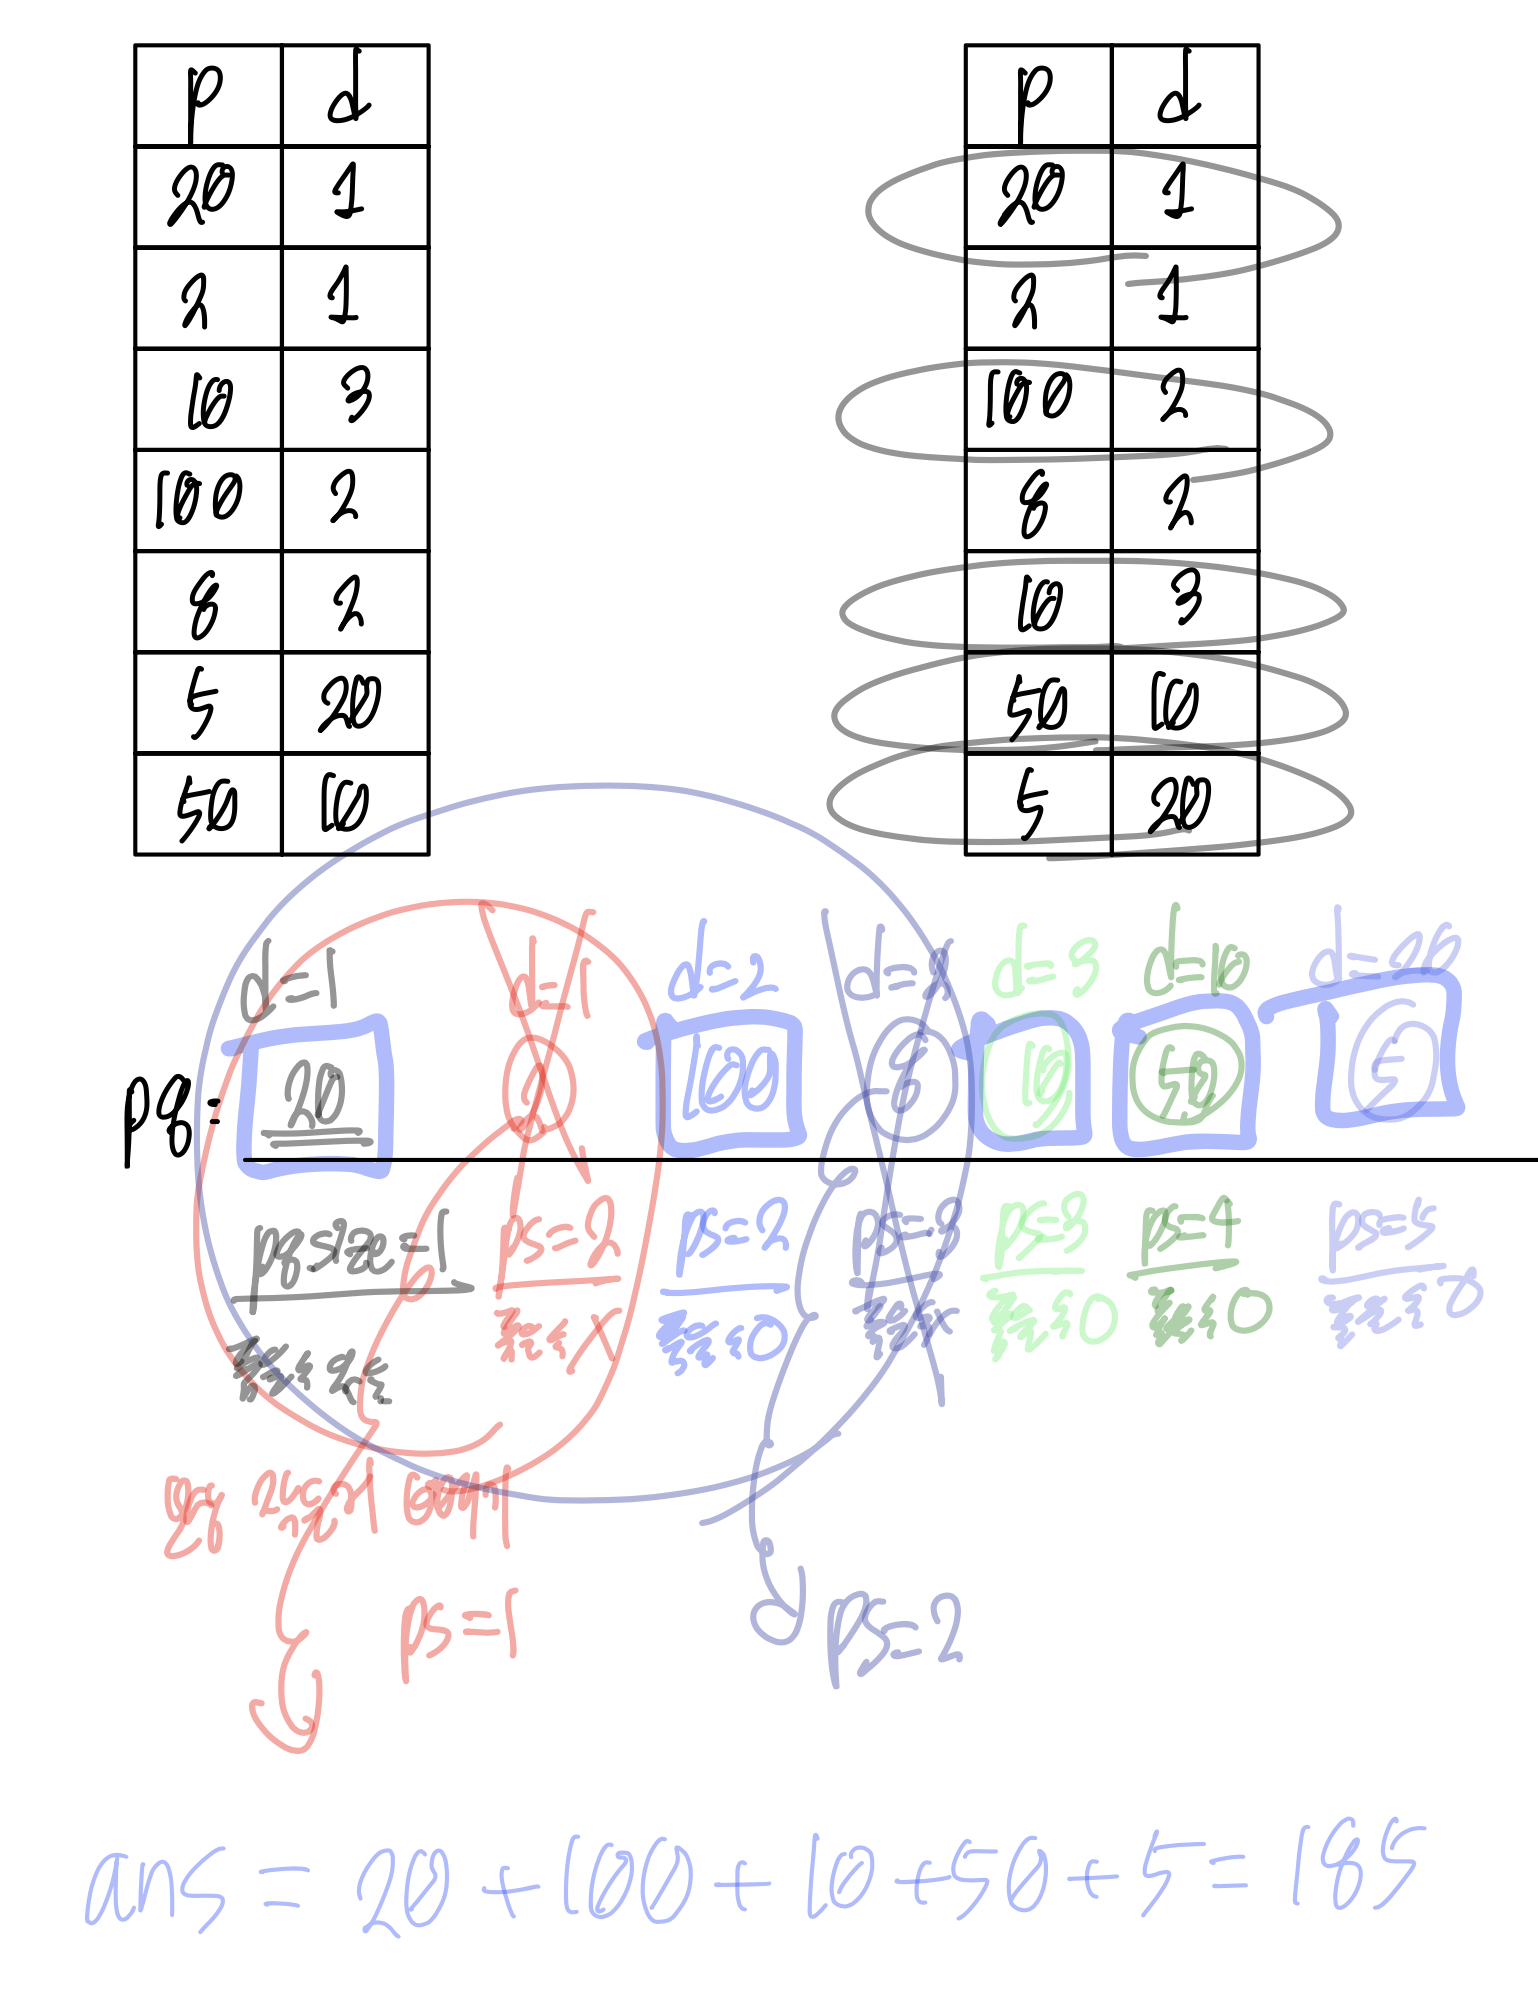 p d
20 1
2 1
10 3
100 2
8 2
5 20
50 10
p d
20 1
2 1
100 2
8 2
10 3
50 10
5 20
d=1 d=1 d=2 d=2 d=3 d=10 d=20
pq= 20 2 100 8 10 50 5
pqsize=1 ps=2 ps=2 ps=3 ps=3 ps=4 ps=5
X O X O O O
ps=1
ps=2
ans = 20 +100 + 10 +50 + 5 = 185